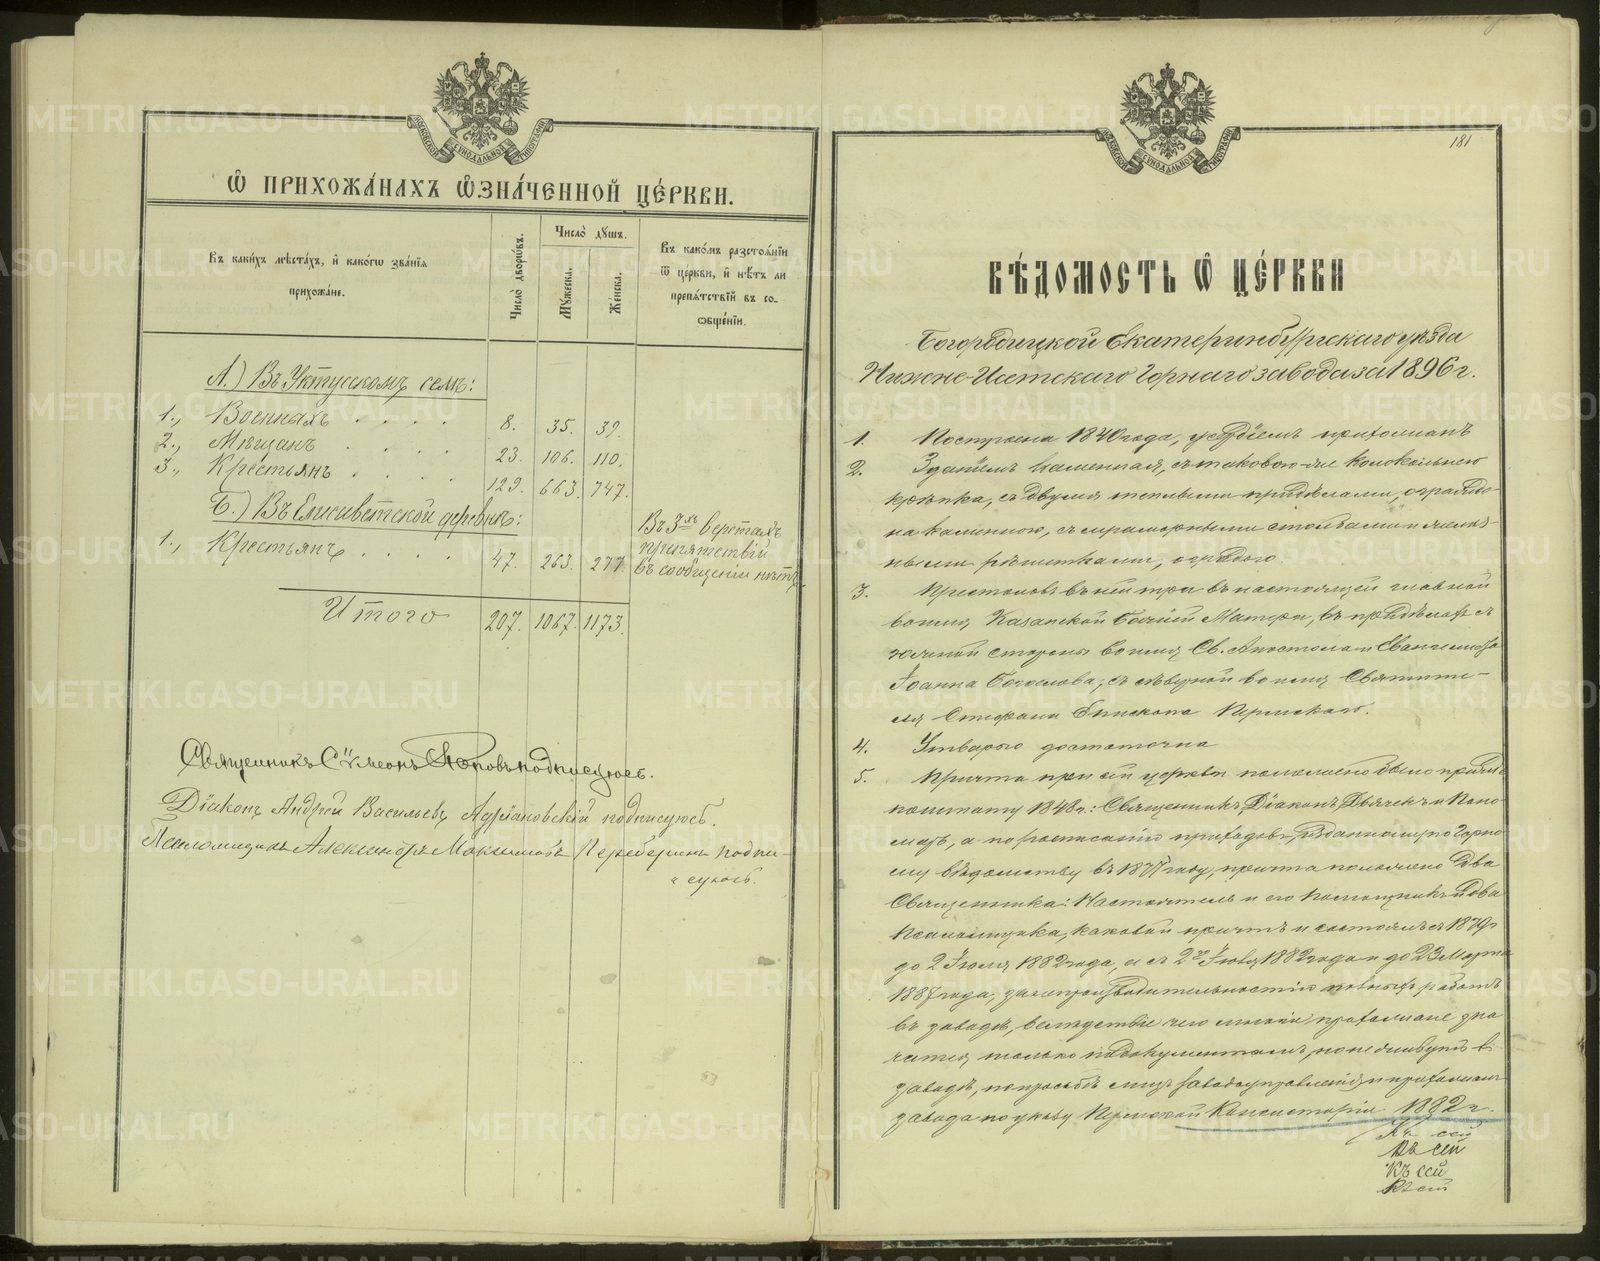 Ѡ ПРИХОЖА́НАХЪ Ѡ҆ЗНА́ЧЕННОЙ ЦЕ́РКВИ.
Въ каки́хъ мѣста́хъ, и҆ како́гѡ зва́нїѧ прихожа́не.
Число̀ дворѡ́въ.
Число̀ дꙋшъ.
Мꙋ́жеска.
Же́нска.
Въ како́мъ разстоѧ́нїи
ѿ це́ркви, и҆ нѣ́тъ ли
препѧ́тствїй въ со-
ѡбще́нїи.
А.) Въ Уктусскомъ селѣ:
1., Военныхъ . . . . 8. 35. 39.
2., Мѣщанъ . . . . 23. 106. 110.
3., Крестьянъ . . . . 129. 663. 747.
Б.) Въ Елисаветской деревнѣ:
1., Крестьянъ . . . . 47. 263. 277.
Въ 3хъ верстахъ
препятствій
въ сообщеніи нѣтъ
Итого 207. 1067. 1173.
Священникъ Сѵмеонъ Поповъ подписуюсь.
Діаконъ Андрей Васильевъ Адріановскій подписуюсь.
Псаломщикъ Александръ Максимовъ Переберинъ подпи-
суюсь.
181
ВѢ́ДОМОСТЬ Ѡ҆ ЦЕ́РКВИ
Богородицкой Екатеринбургскаго уѣзда
Нижне-Исетскаго Горнаго завода за 1896 г.
1. Построена 1840 года, усердіемъ прихожанъ
2. Зданіемъ каменная, съ таковою-же колокольнею
крѣпка, съ двумя теплыми придѣлами, ограде-
на каменною, съ мраморными столбами и желѣз-
ными рѣшетками, оградою.
3. Престоловъ въ ней три: въ настоящей главной
во имя, Казанской Божіей Матери, въ придѣлахъ съ
южной стороны во имя Св. Апостола и Евангелиста
Іоанна Богослова, съ сѣверной во имя Святите-
ля Стефана Епископа Пермскаго.
4. Утварью достаточна
5. Причта при сей церкви положено было прежде
по штату 1848 г.: Священникъ, Діаконъ, Дьячекъ и Поно-
марь, а по росписанію приходовъ, изданному по Горно-
му вѣдомству въ 1877 году, причта положено два
Священника: Настоятель и его Помощникъ и два
Псаломщика, каковой причтъ и состоялъ съ 1879 г
до 2 Іюля 1882 года, а съ 2го Іюля 1882 года и до 23 Марта
1887 года, за непроизводительностію полныхъ работъ
въ заводѣ, вслѣдствіе чего многіе прихожане зна-
чатся только по документамъ, но не живутъ въ
заводѣ, по просьбѣ лицъ Заводоуправленія и прихожанъ
завода по указу Пермской Консисторіи 1882 г.
Къ сей
Къ сей
Къ сей